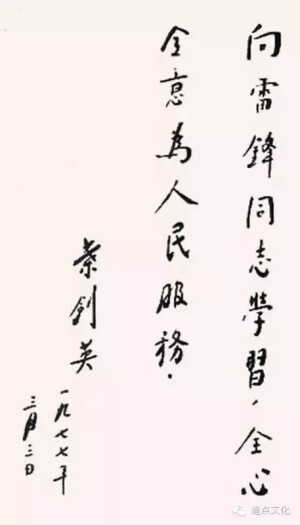 向雷鋒同志學習，全心
全意為人民服務.
葉劍英
一九七七年
三月三日
追点文化